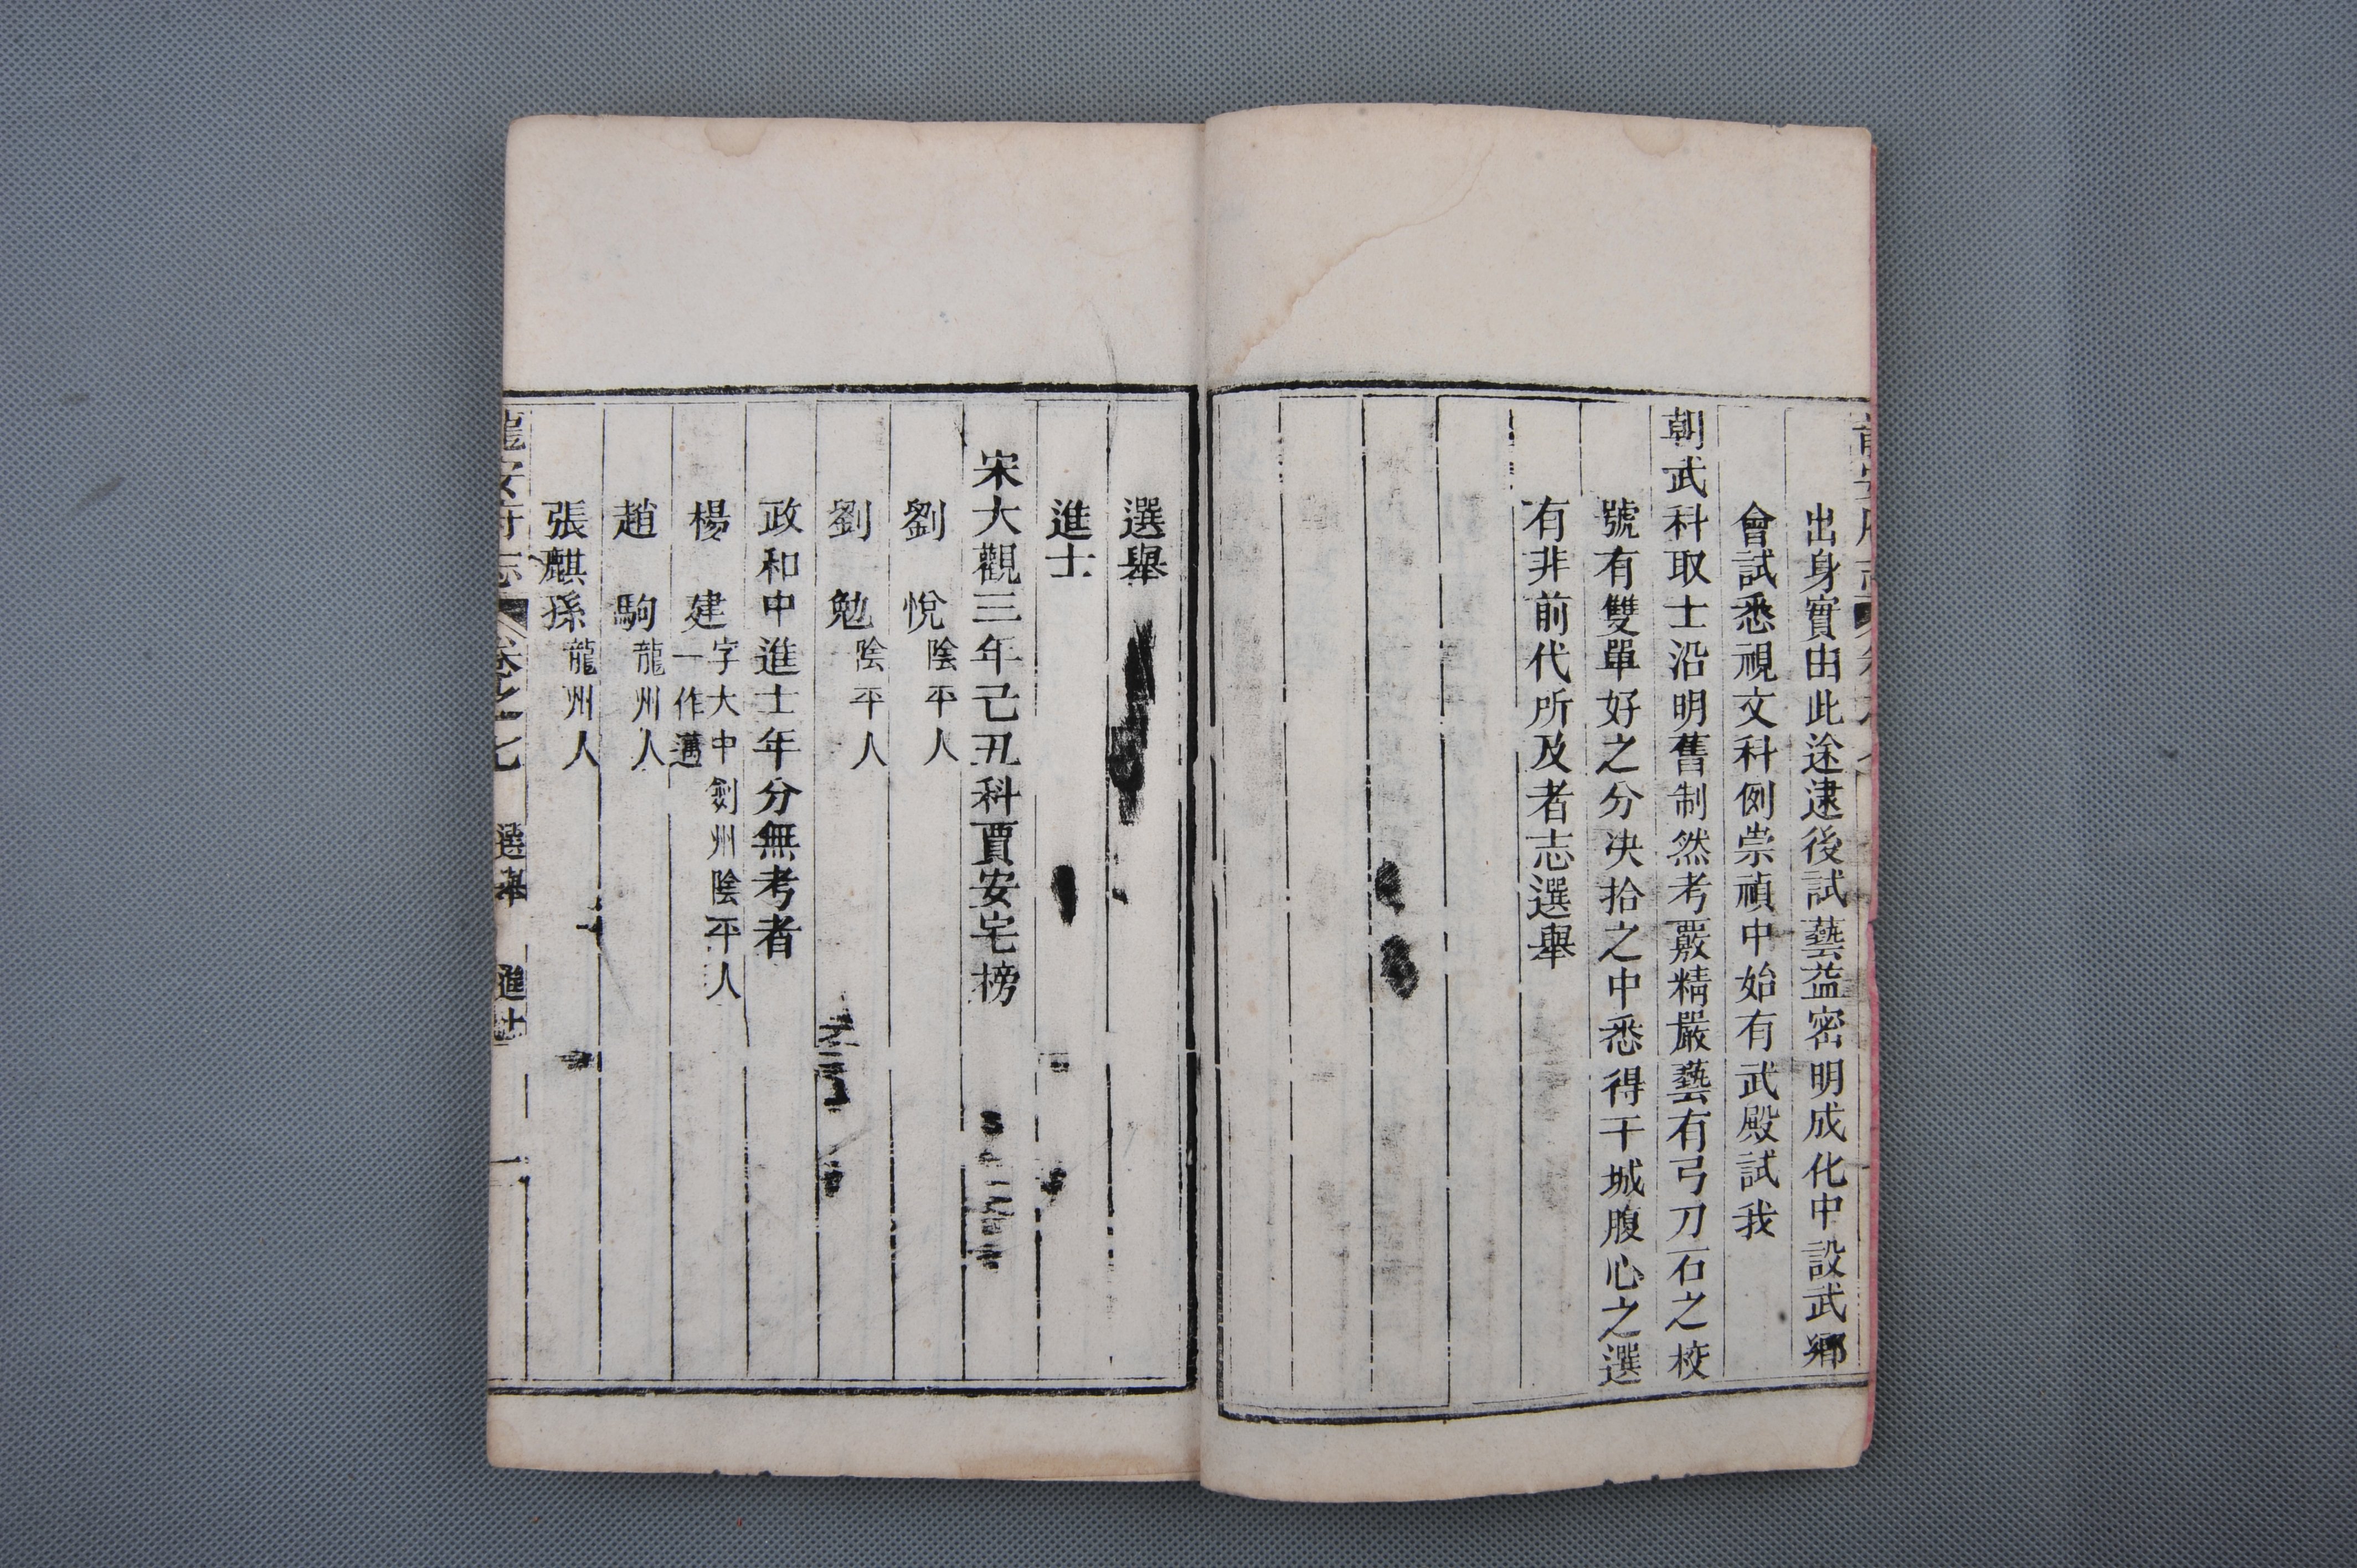 出身實由此途逮後試藝益密明成化中設武鄉
會試悉視文科例崇禎中始有武殿試我
朝武科取士沿明舊制然考覈精嚴藝有弓刀石之校
號有雙單好之分决拾之中悉得干城腹心之選
有非前代所及者志選舉
選舉
進士
宋大觀三年己丑科賈安宅榜
劉悅陰平人
劉勉陰平人
政和中進士年分無考者
楊建字大中劍州陰平人
一作邁
趙駒龍州人
張麒孫龍州人
龍安府志 卷之七 選舉 進士 一